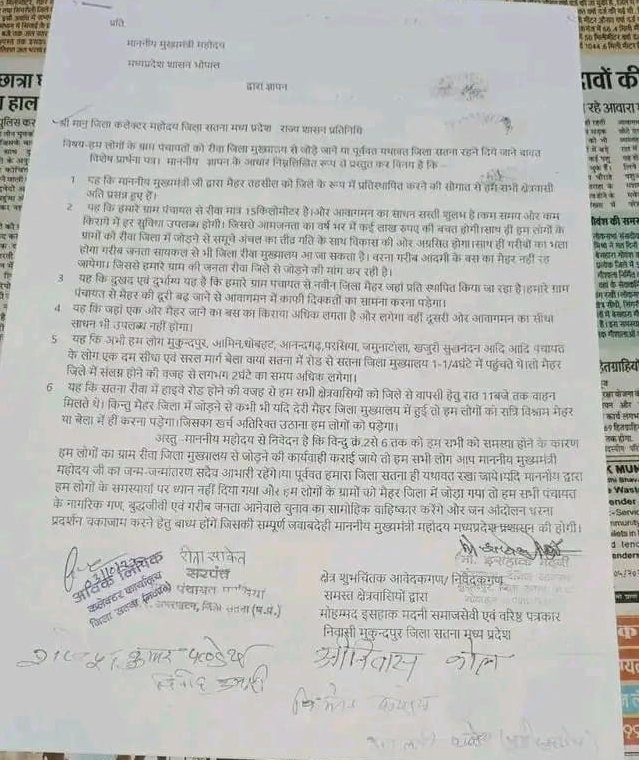 प्रति
माननीय मुख्यमंत्री महोदय
मध्यप्रदेश शासन भोपाल
द्वारा ज्ञापन
श्री मान् जिला कलेक्टर महोदय जिला सतना मध्य प्रदेश राज्य शासन प्रतिनिधि
विषय-हम लोगों के ग्राम पंचायतों को रीवा जिला मुख्यालय से जोड़े जाने या पूर्ववत यथावत जिला सतना रहने दिये जाने बावत
विशेष प्रार्थना पत्र। माननीय ज्ञापन के आधार निम्नलिखित रूप से प्रस्तुत कर विनय है कि –
1 यह कि माननीय मुख्यमंत्री जी द्वारा मैहर तहसील को जिले के रूप में प्रतिस्थापित करने की सौगात से हम सभी क्षेत्रवासी
अति प्रसन्न हुए हैं।
2 यह कि हमारे ग्राम पंचायत से रीवा मात्र 15किलोमीटर है।और आवागमन का साधन सस्ती शुलभ है।कम समय और कम
किराये में हर सुविधा उपलब्ध होगी। जिससे आमजनता का वर्ष भर में कई लाख रुपए की बचत होगी।साथ ही हम लोगों के
ग्रामों को रीवा जिला में जोड़ने से समूचे अंचल का तीव्र गति के साथ विकास की ओर अग्रसित होगा।साथ ही गरीबों का भला
होगा गरीब जनता सायकल से भी जिला रीवा मुख्यालय आ जा सकता है। वरना गरीब आदमी के बस का मैहर नहीं रह
जायेगा। जिससे हमारे ग्राम की जनता रीवा जिले से जोड़ने की मांग कर रही है।
3 यह कि दुखद एवं दुर्भाग्य यह है कि हमारे ग्राम पंचायत से नवीन जिला मैहर जहां प्रति स्थापित किया जा रहा है।हमारे ग्राम
पंचायत से मैहर की दूरी बढ़ जाने से आवागमन में काफी दिक्कतों का सामना करना पड़ेगा।
4 यह कि जहां एक ओर मैहर जाने का बस का किराया अधिक लगता है और लगेगा वहीं दूसरी ओर आवागमन का सीधा
साधन भी उपलब्ध नहीं होगा।
5 यह कि अभी हम लोग मुकुन्दपुर, आमिन,धोबहट, आनन्दगढ़,परसिया, जमुनाटोला, खजुरी सुखनंदन आदि आदि पंचायत
के लोग एक दम सीधा एवं सरल मार्ग बेला वाया सतना में रोड से सतना जिला मुख्यालय 1-1/4घंटे में पहुंचते थे।तो मैहर
जिले में संलग्न होने की वजह से लगभग 2घंटे का समय अधिक लगेगा।
6 यह कि सतना रीवा में हाइवे रोड होने की वजह से हम सभी क्षेत्रवासियों को जिले से वापसी हेतु रात 11बजे तक वाहन
मिलते थे। किन्तु मैहर जिला में जोड़ने से कभी भी यदि देरी मैहर जिला मुख्यालय में हुई तो हम लोगों को रात्रि विश्राम मैहर
या बेला में ही करना पड़ेगा।जिसका खर्च अतिरिक्त उठाना हम लोगों को पड़ेगा।
अस्तु -माननीय महोदय से निवेदन है कि विन्दु क्र.2से 6 तक को हम सभी को समस्या होने के कारण
हम लोगों का ग्राम रीवा जिला मुख्यालय से जोड़ने की कार्यवाही कराई जाये तो हम सभी लोग आप माननीय मुख्यमंत्री
महोदय जी का जन्म-जन्मांतरण सदैव आभारी रहेंगे।या पूर्ववत हमारा जिला सतना ही यथावत रखा जाये।यदि माननीय द्वारा
हम लोगों के समस्याओं पर ध्यान नहीं दिया गया और हम लोगों के ग्रामों को मैहर जिला में जोड़ा गया तो हम सभी पंचायत
के नागरिक गण, बुद्धजीवी एवं गरीब जनता आनेवाले चुनाव का सामोहिक वाहिष्कार करेंगे और जन आंदोलन धरना
प्रदर्शन चकाजाम करने हेतु बाध्य होंगे जिसकी सम्पूर्ण जवाबदेही माननीय मुख्यमंत्री महोदय मध्यप्रदेश प्रशासन की होगी।
रीता साकेत
सरपंच
कलेक्टर कार्यालय
जिला सतना
जिला सतना (म.प्र.)
मो. इसहाक मदनी
क्षेत्र शुभचिंतक आवेदकगण/ निवेदकगण
समस्त क्षेत्रवासियों द्वारा
मोहम्मद इसहाक मदनी समाजसेवी एवं वरिष्ठ पत्रकार
निवासी मुकुन्दपुर जिला सतना मध्य प्रदेश